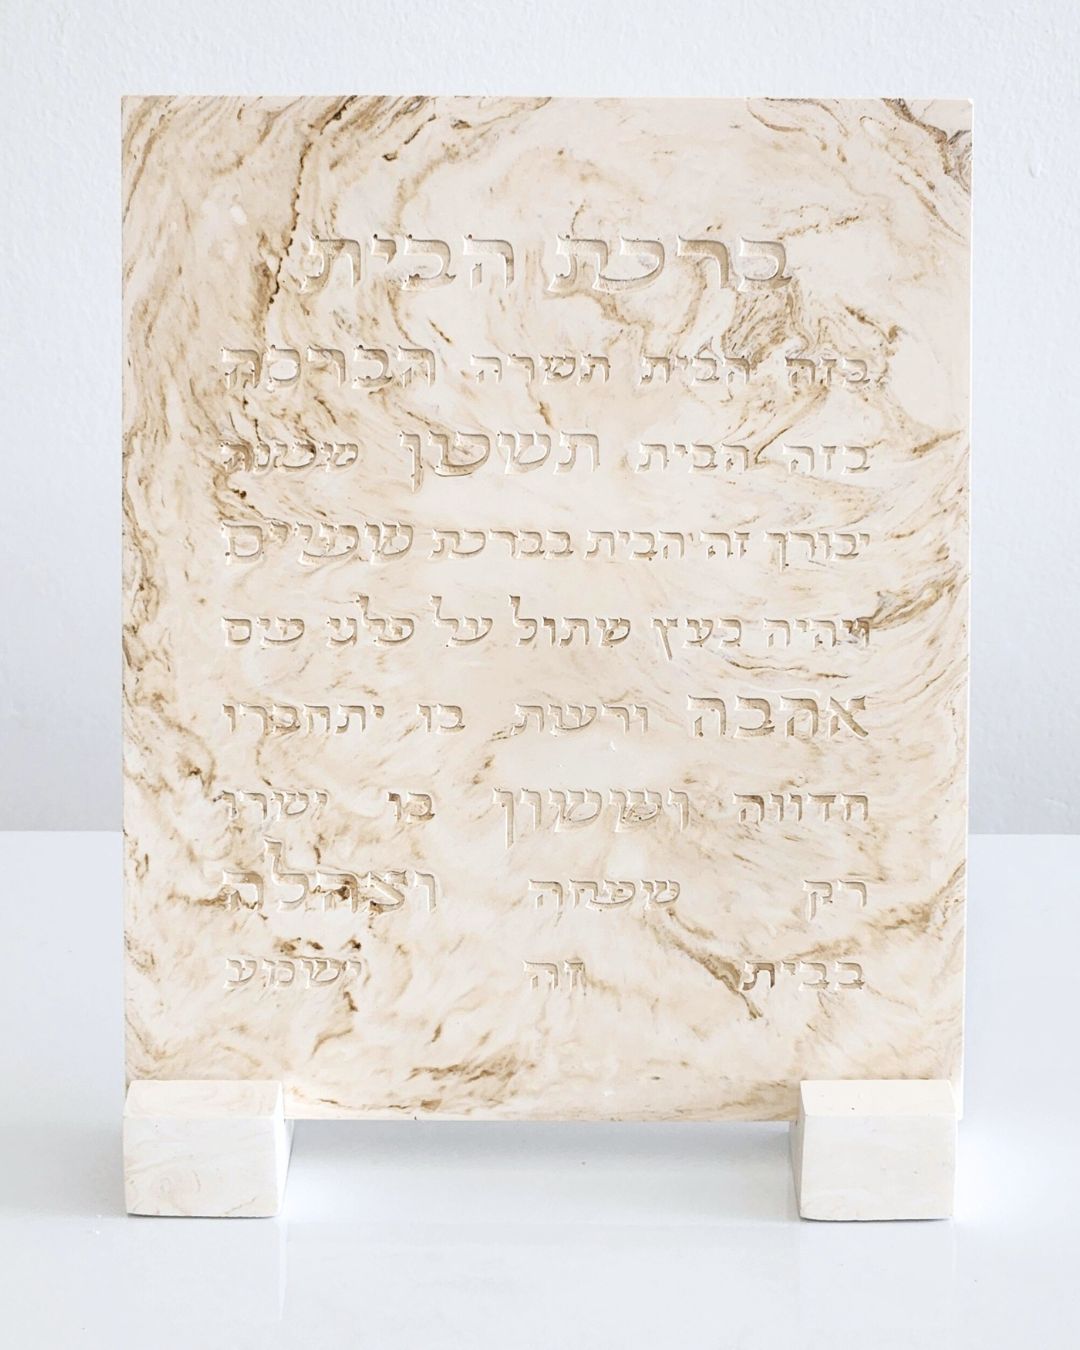 ברכת הבית
בזה הבית תשרה הברכה
בזה הבית תשכון שכינה
יבורך זה הבית בברכת שמים
ויהיה כעץ שתול על פלג מים
אהבה ורעות בו יתחברו
חדווה וששון בו ישרו
רק שמחה וצהלה
בבית זה ישמע